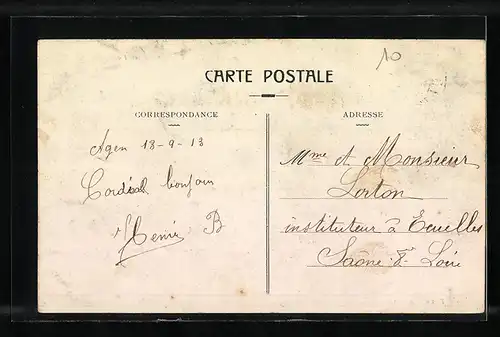 10
CARTE POSTALE
CORRESPONDANCE
ADRESSE
Agen 18-9-13
Cordial bonjour
Henri B
Mme et Monsieur
Lorton
instituteur à Ecuelles
Saône-&-Loire